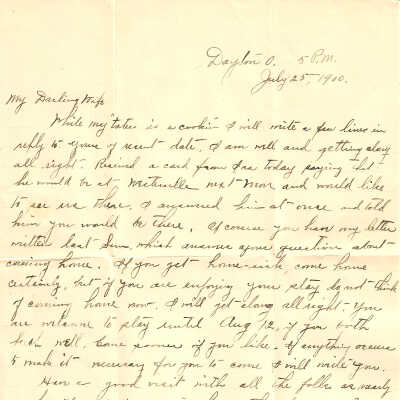 Dayton O. 5 P.M.
July 25, 1900.
My Darling Wife
While my taters is a cookin I will write a few lines in
reply to yours of recent date. I am well and getting along
all right. Received a card from Ira today saying that
he would be at next Mon and would like
to see us there. I answered him at once and told
him you would be there. Of course you have my letter
written last Sun. which answers your question about
coming home. If you get home-sick, come home
certainly, but if you are enjoying your stay do not think
of coming home now. I will get along all right. You
are welcome to stay until Aug 12, if you both
well. Come sooner if you like. If anything occurs
to make it necessary for you to come I will write you.
Have a good visit with all the folks as nearly